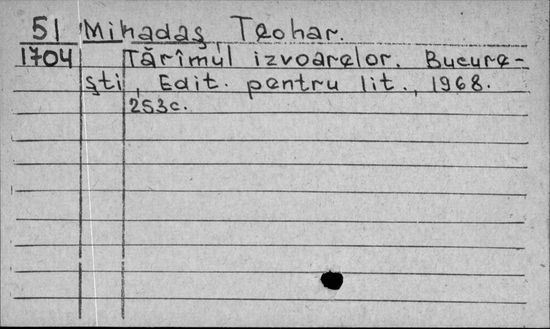 51 Mihadaş, Teohar.
1704 Tărîmul izvoarelor. Bucure-
şti, Edit. pentru lit., 1968.
253c.